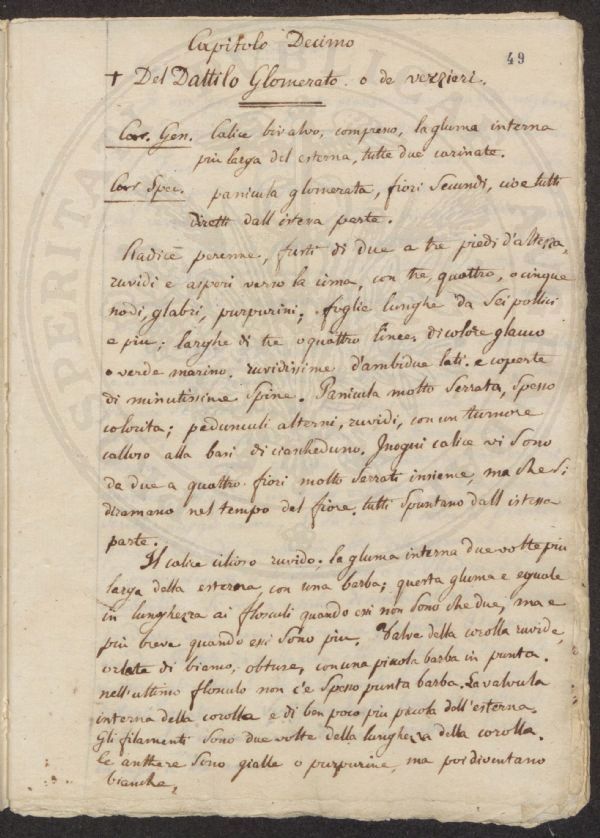 Capitolo Decimo
49
+ Del Dattilo Glomerato. o de verzieri.
Car. Gen. Calice bivalvo, compreso, la gluma interna
piu larga del esterna, tutte due carinate.
Car Spec. panicula glomerata, fiori Secundi, cioe tutti
diretti dall istessa parte.
Radice perenne, fusti di due a tre piedi d'altezza,
ruvidi e asperi verso la cima, con tre, quattro, o cinque
nodi, glabri, purpurini; foglie lunghe da Sei pollici
e piu; larghe di tre o quattro linee. di colore glauco
o verde marino. ruvidissime d'ambidue lati. e coperte
di minutissime Spine. Panicula motto Serrata, Spesso
colorita; pedunculi alterni, ruvidi, con un tumore
calloso alla basi di ciascheduno. In ogni calice vi Sono
da due a quattro fiori molto Serrati insieme, ma che Si
diramano nel tempo del fiore. tutti Spuntano dall istessa
parte.
Il calice cilioso ruvido; la gluma interna due volte piu
larga della esterna, con una barba; questa gluma e eguale
in lunghezza ai flosculi quando essi non Sono che due, ma e
piu breve quando essi Sono piu. Valve della corolla ruvide,
orlate di bianco, obtuse, con una picola barba in punta.
nell'ultimo flosculo non c'e Spesso punta barba. La valvula
interna della corolla e di ben poco piu picola dall'esterna.
Gli filamenti Sono due volte della lunghezza della corolla.
le anthere Sono gialle o purpurine, ma poi diventano
bianche,